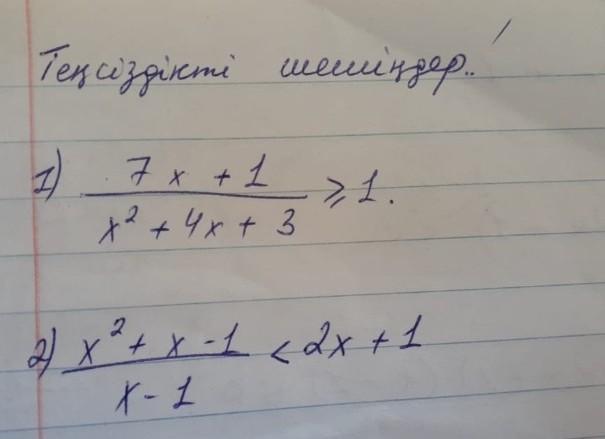 Теңсіздікті шешіңдер..
1) 7x + 1 / x² + 4x + 3 ⩾ 1.
2) x² + x - 1 / x - 1 < 2x + 1